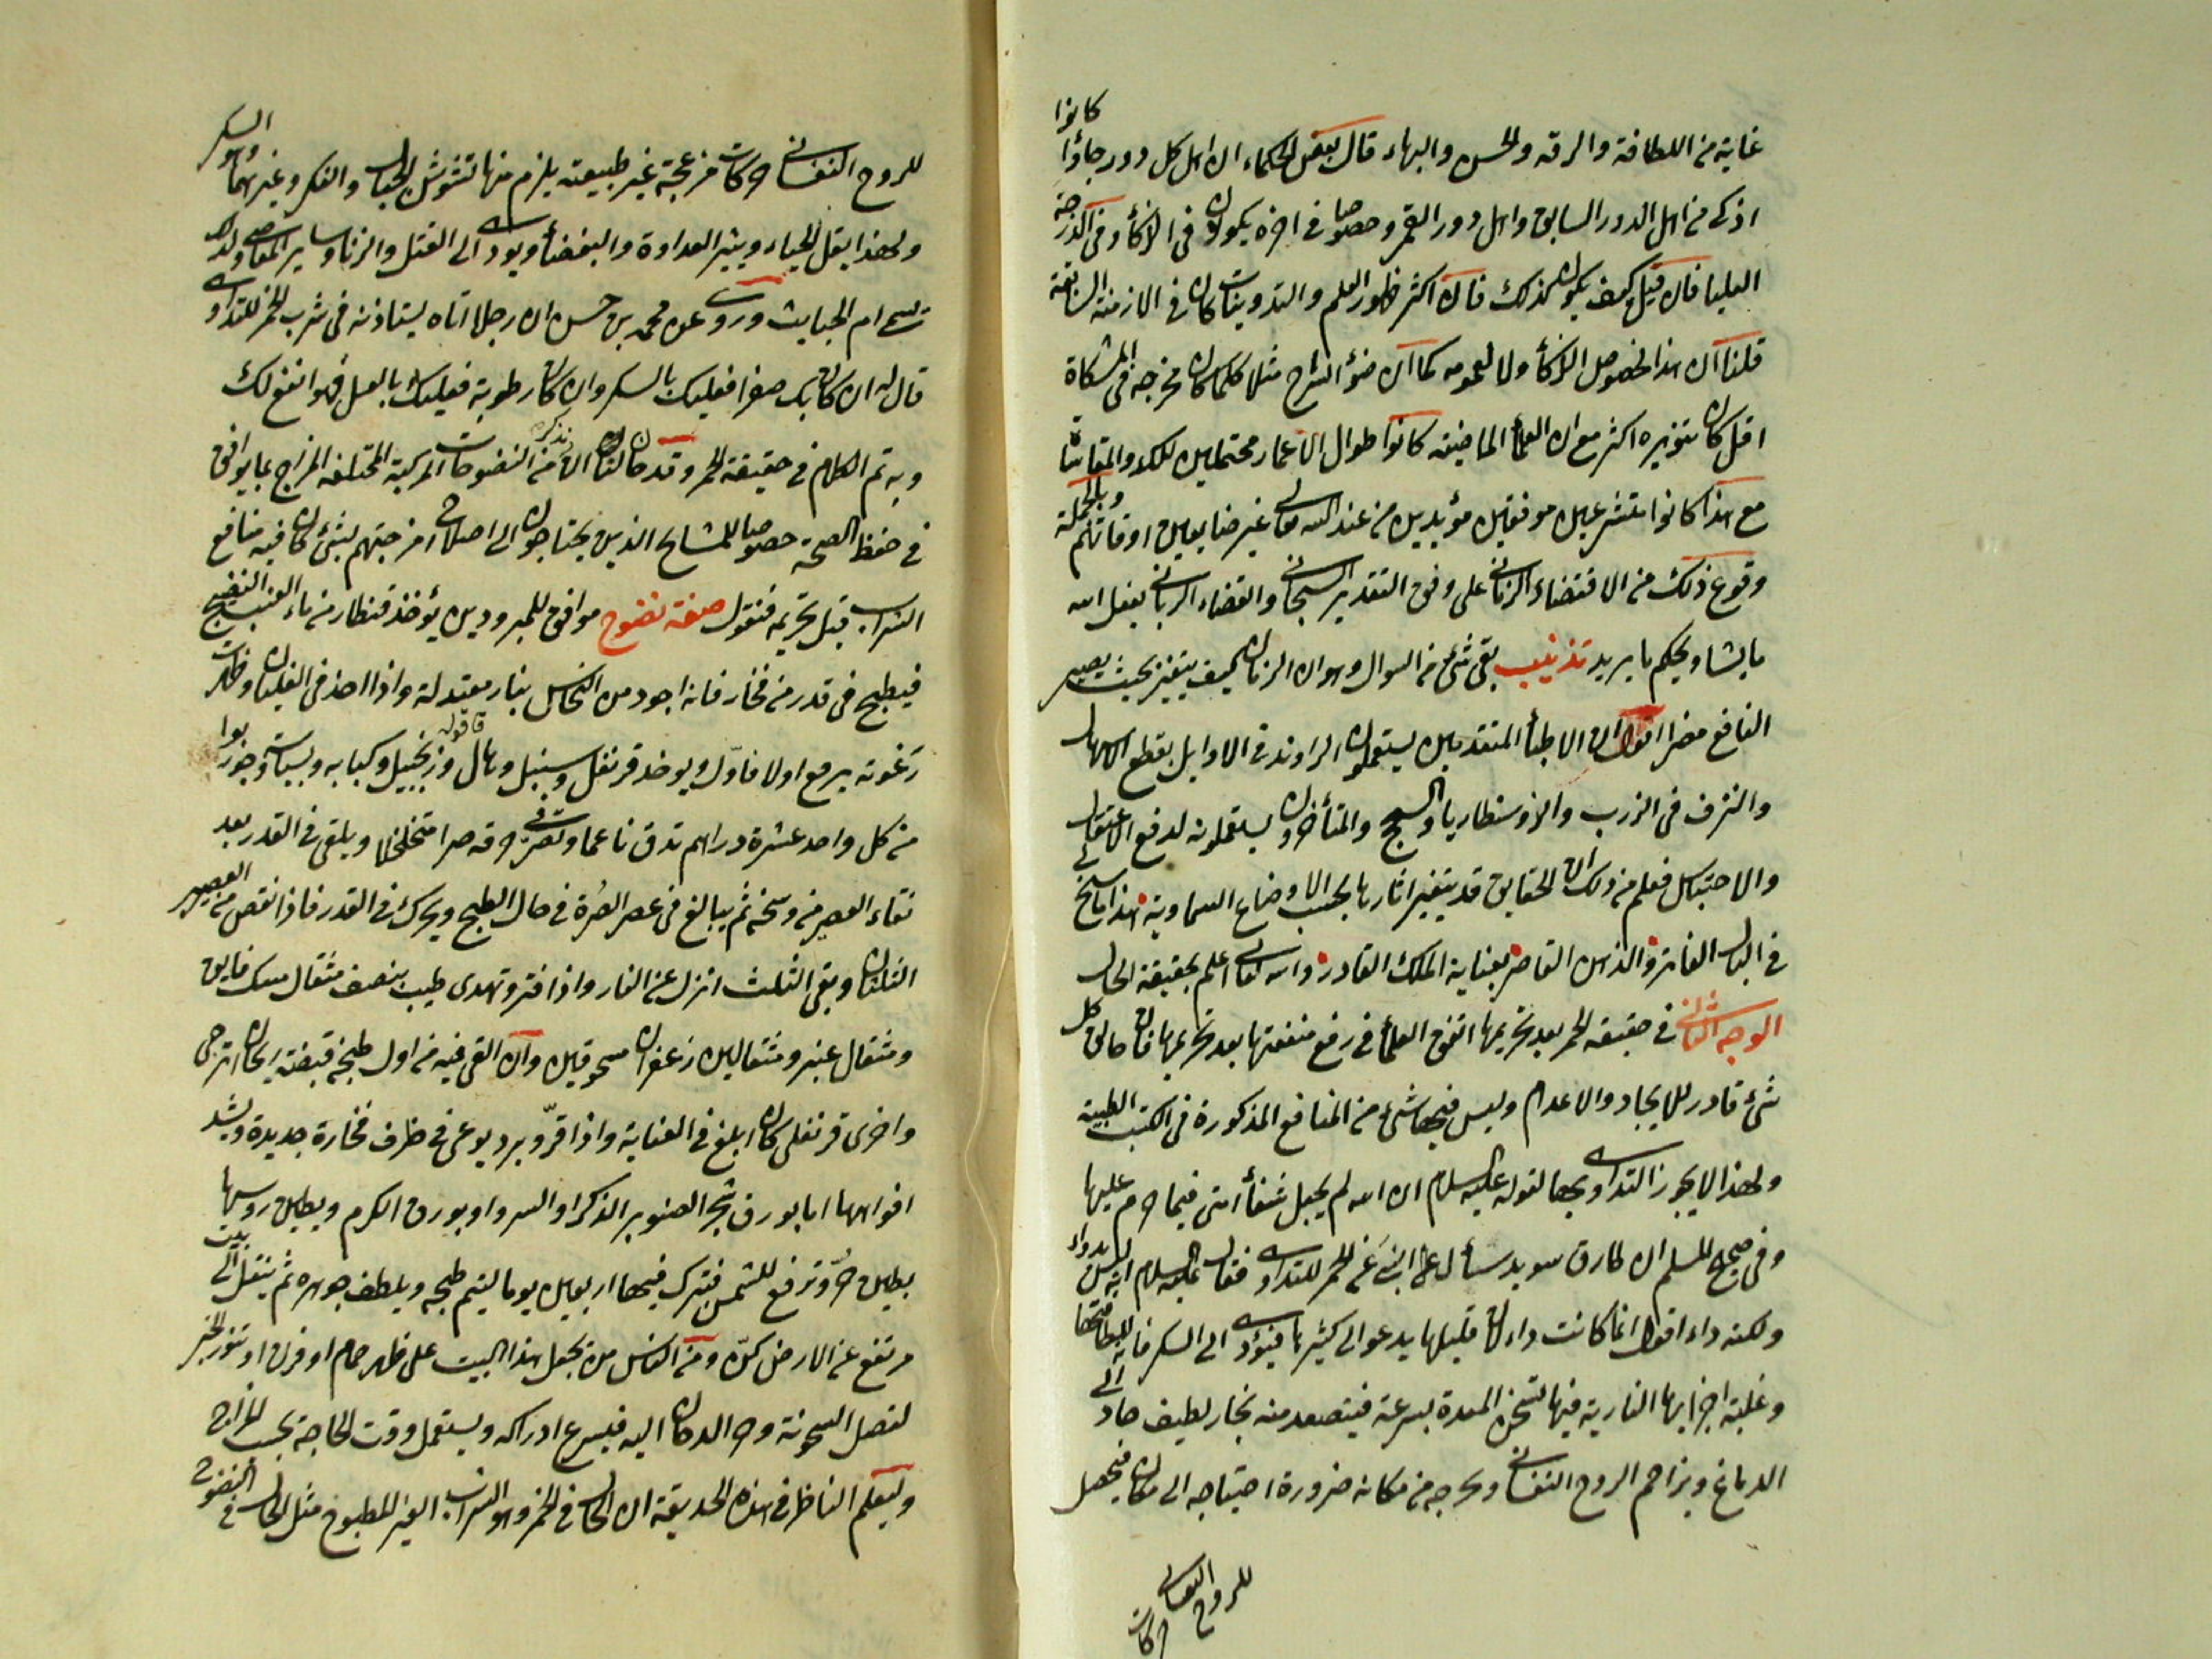 غاية من اللطافة والرقه والحسن والبهاء قال بعض الحكماء ان اهل كل دور جاؤا كانوا
اذكى من اهل الدور السابق واهل دور القمر وخصوصا في اخره يكونون في الذكأ وفي الدرجة
العليا فان قيل كيف يكون كذلك فان اكثر ظهور العلم والتدوينات كان في الازمنة السابقة
قلنا ان هذا لخصوص الذكأ ولا لعمومه كما ان ضوء السراج مثلا كلما كان مخرجه في المشكاة
اقل كان تنويره اكثر مع ان العلمأ الماضيه كانوا طوال الاعمار محتملين للكد والمقاساة
مع هذا كانوا متشرعين موفقين مؤيدين من عند الله تعالى غير ضايعين اوقاتهم وبالجملة
وقوع ذلك من الاقتضاء الزماني على وفق التقدير السبحاني والقضاء الرباني يفعل الله
ما يشا ويحكم ما يريد تذنيب بقى شئ من السوال وهو ان الزمان كيف يتغير بحيث يصير
النافع مضرا اقول ان الاطبأ المتقدمين يستعملون الراوند في الاوايل بقطع الاسهال
والنزف في الذرب والذوسنطاريا والسحج والمتأخرون يستعملونه لدفع الاعتقال
والاحتباس فعلم من ذلك ان الحقايق قد يتغير اثارها بحسب الاوضاع السماوية هذا ما سنح
في البال الفاتر والذهن القاصر بعناية الملك القادر والله تعالى اعلم بحقيقة الحال
الوجه الثاني في حقيقه الخمر بعد تحريمها اتفق العلمأ في رفع منفعتها بعد تحريمها فان خالق كل
شئ قادر للايجاد والاعدام وليس فيها شئ من المنافع المذكورة في الكتب الطبية
ولهذا لا يجوز التداوى بها لقوله عليه السلام ان الله لم يجعل شفأ امتى فيما حرم عليها
وفي صحيح المسلم ان طارق سويد سأل النبي عن الخمر للتداوى فقال عليه السلام انه ليس بدواء
ولكنه داء اقول انما كانت داء لان قليلها يدعو الى كثيرها فيؤدى الى السكر فانه للطافتها
وغلبة اجزايها النارية فيها تسخن المعدة بسرعة فيتصعد منه بخار لطيف حاد الى
الدماغ ويزاحم الروح النفساني ويخرجه من مكانه ضرورة احتياجه الى مكان فيحصل
للروح النفساني حركات
للروح النفساني حركات مزعجة غير طبيعته يلزم منها تشوش الخيال والفكر وغيرهما وهو السكر
ولهذا يقل الحياء ويثير العداوة والبغضأ ويودى الى القتل والزنا وساير المعاصى ولذلك
تسمى ام الخبايث وروى عن محمد بن حسن ان رجلا اتاه يستاذنه في شرب الخمر للتداوى
قال له ان كان بك صفرا فعليك بالسكر وان كان رطوبة فعليك بالعسل فهو انفع لك
وبه تم الكلام في حقيقة الخمر وقد حان لنا ان نذكر من النضوحات المركبة المختلفه المزاج بما يوافق
في حفظ الصحة خصوصا للمشايخ الذين يحتاجون الى اصلاح امزجتهم بشئ كان فيه منافع
الشراب قبل تحريمه فنقول صفة نضوح موافق للمبرودين يؤخذ قنطار من ماء العنب النضيج
فيطبخ في قدر من فخار فانه اجود من النحاس بنار معتدلة واذا اخذ في الغليان وظهرت
رغوته يرمع اولا فاول ويوخذ قرنفل وسنبل وهال قاقوله وزنجبيل وكبابه وبسباسة وجوزبوا
من كل واحد عشرة دراهم تدق ناعما وتصر في خرقه صرا متخلخلا ويلقى في القدر بعد
نقاء العصير من وسخه ثم يبالغ في عصر الصرة في حال الطبخ ويحرك في القدر فاذا نقص من العصير
الثلثان وبقي الثلث انزل عن النار واذا فتر وتهدى طيب بنصف مثقال مسك فايق
ومثقال عنبر ومثقالين زعفران مسحوقين وان القى فيه من اول طبخه قبضة ريحان اترجى
واخرى قرنفلى كان ابلغ في الغناية واذا قر وبرد يوعى في ظرف فخارة جديدة ويشد
افواهها اما بورق شجر الصنوبر الذكر او السرو او بورق الكرم ويطين روسها
بطين حر وترفع للشمس فيترك فيها اربعين يوما ليتم طبخه ويلطف جوهره ثم ينتقل الى بيت
مرتفع عن الارض كن ومن الناس من يجعل هذا البيت على ظهر حمام او فرن او تنور الخبز
لتصل السخونة وحر الدخان اليه فيسرع ادراكه ويستعمل وقت الحاجة بحسب المزاج
وليعلم الناظر في هذه الحديقة ان الحال في الخمر وهو الشراب الغير المطبوخ مثل الحال في النضوح